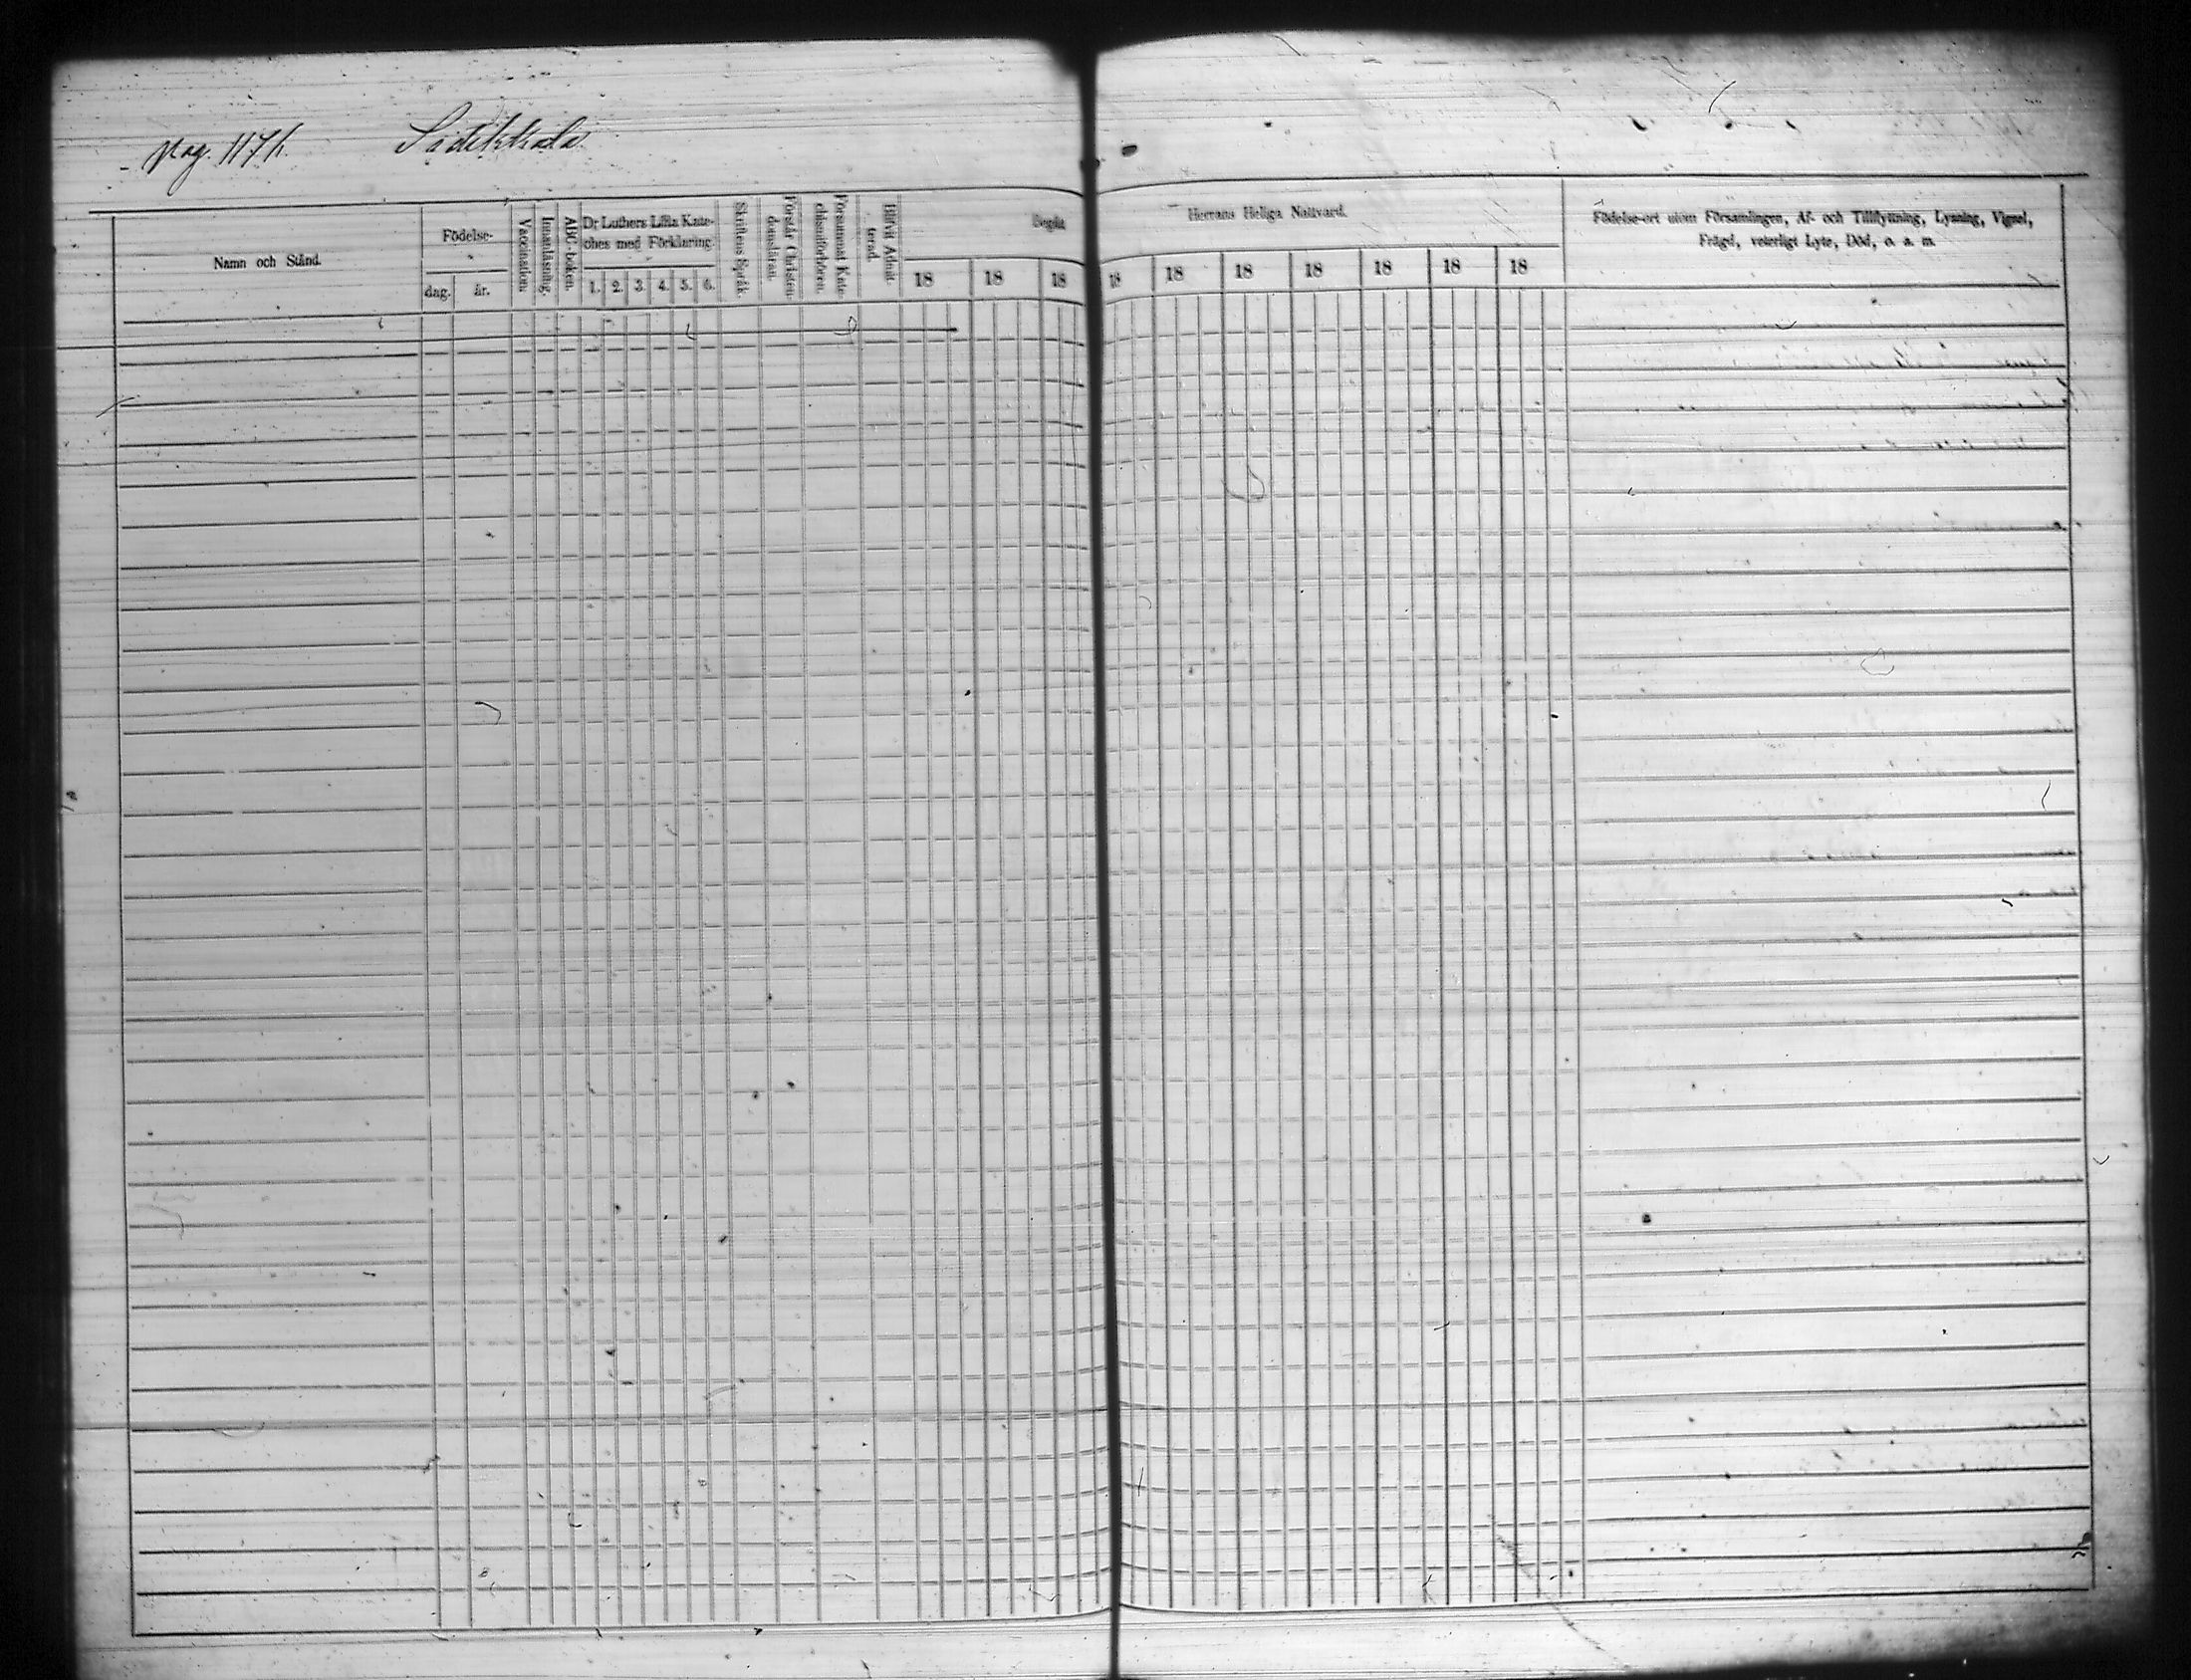 pag. 1171.
Namn och Stånd.
Födelse-
dag.
år.
Vaccination.
Innanläsning.
ABC-boken.
Dr Luthers Lilla Kate-
ches med Förklaring.
1. 2. 3. 4. 5. 6.
Skriftens Språk.
Förstår Christen-
domsläran.
Försummat Kate-
chismiförhören.
Blifvit Admit-
terad.
Begått
18 18 18
Herrans Heliga Nattvard.
18 18 18 18 18 18 18
Födelse-ort utom Församlingen, Af- och Tillflyttning, Lysning, Vigsel,
Frägd, veterligt Lyte, Död, o. a. m.